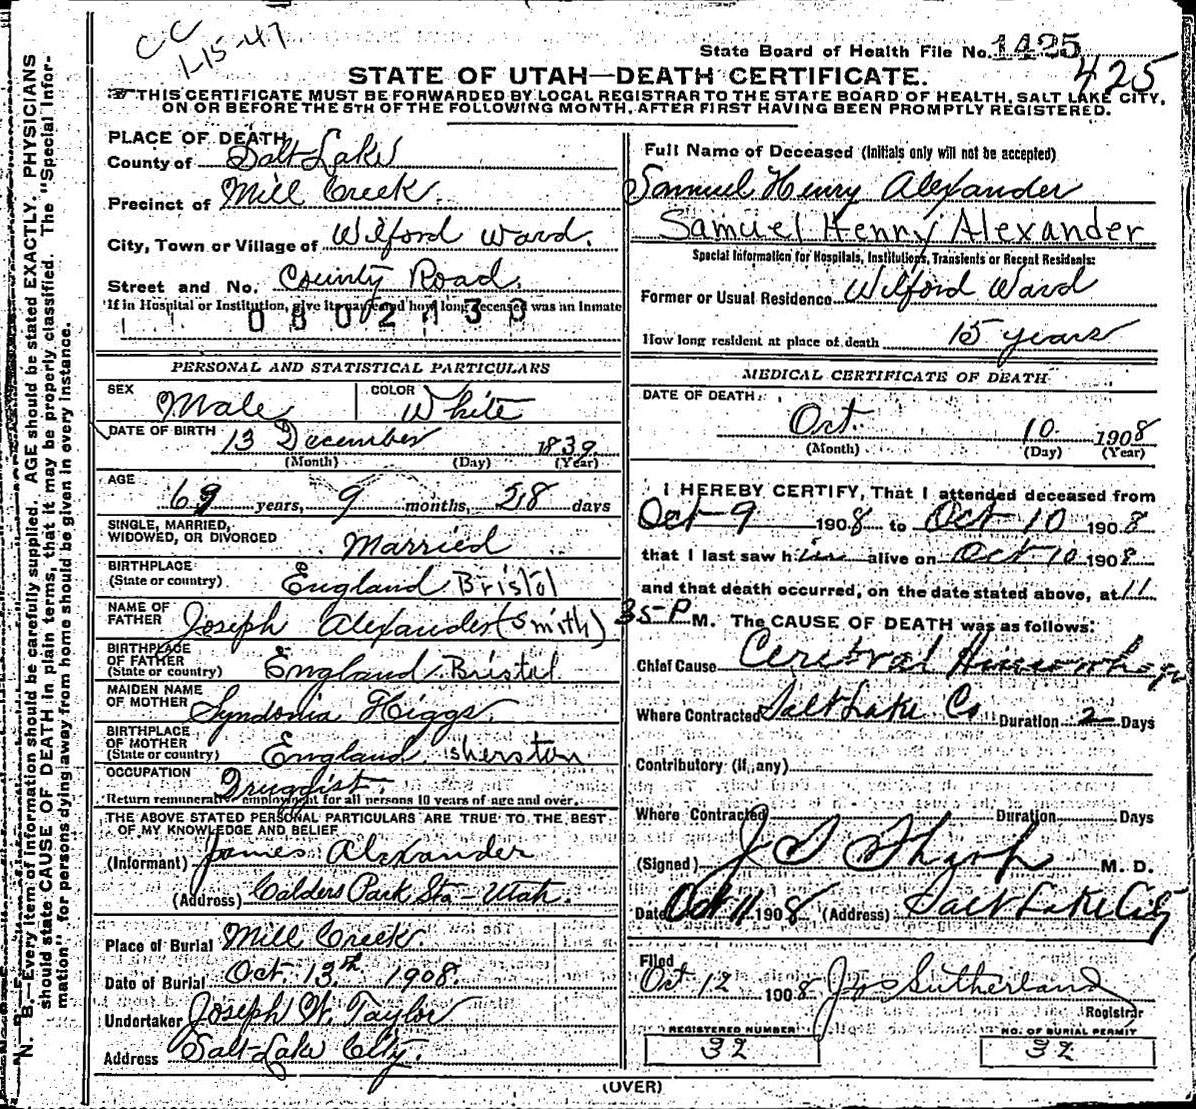 C C
1-15-47
State Board of Health File No. 1425
425
STATE OF UTAH—DEATH CERTIFICATE.
☞THIS CERTIFICATE MUST BE FORWARDED BY LOCAL REGISTRAR TO THE STATE BOARD OF HEALTH, SALT LAKE CITY,
ON OR BEFORE THE 5TH OF THE FOLLOWING MONTH, AFTER FIRST HAVING BEEN PROMPTLY REGISTERED.
N. B.—Every item of information should be carefully supplied. AGE should be stated EXACTLY. PHYSICIANS
should state CAUSE OF DEATH in plain terms, that it may be properly classified. The "Special Infor-
mation" for persons dying away from home should be given in every instance.
PLACE OF DEATH
County of Salt Lake
Precinct of Mill Creek.
City, Town or Village of Wilford Ward.
Street and No. County Road.
If in Hospital or Institution, give its name and how long deceased was an inmate
PERSONAL AND STATISTICAL PARTICULARS
SEX Male COLOR White
DATE OF BIRTH 13 December 1839.
(Month) (Day) (Year)
AGE 69 years, 9 months, 28 days
SINGLE, MARRIED,
WIDOWED, OR DIVORCED Married
BIRTHPLACE
(State or country) England Bristol
NAME OF
FATHER Joseph Alexander (Smith)
BIRTHPLACE
OF FATHER
(State or country) England Bristol
MAIDEN NAME
OF MOTHER Syndonia Higgs
BIRTHPLACE
OF MOTHER
(State or country) England. Sherston
OCCUPATION Druggist.
Return remunerative employment for all persons 10 years of age and over.
THE ABOVE STATED PERSONAL PARTICULARS ARE TRUE TO THE BEST
OF MY KNOWLEDGE AND BELIEF
(Informant) James Alexander
(Address) Calders Park Sta - Utah.
Place of Burial Mill Creek.
Date of Burial Oct. 13th 1908.
Undertaker Joseph W. Taylor
Address Salt Lake City.
Full Name of Deceased (Initials only will not be accepted)
Samuel Henry Alexander
Samuel Henry Alexander
Special Information for Hospitals, Institutions, Transients or Recent Residents:
Former or Usual Residence Wilford Ward
How long resident at place of death 15 years
MEDICAL CERTIFICATE OF DEATH
DATE OF DEATH:
Oct. 10 1908
(Month) (Day) (Year)
I HEREBY CERTIFY, That I attended deceased from
Oct 9 1908 to Oct 10 1908
that I last saw him alive on Oct 10 1908
and that death occurred, on the date stated above, at 11
35-P M. The CAUSE OF DEATH was as follows:
Chief Cause Cerebral
Where Contracted Salt Lake Co Duration 2 Days
Contributory (if any)
Where Contracted Duration Days
(Signed) J S Sharp M. D.
Date Oct 11 1908 (Address) Salt Lake City
Filed
Oct 12 1908 Jos Sutherland
Registrar
REGISTERED NUMBER NO. OF BURIAL PERMIT
32 32
(OVER)